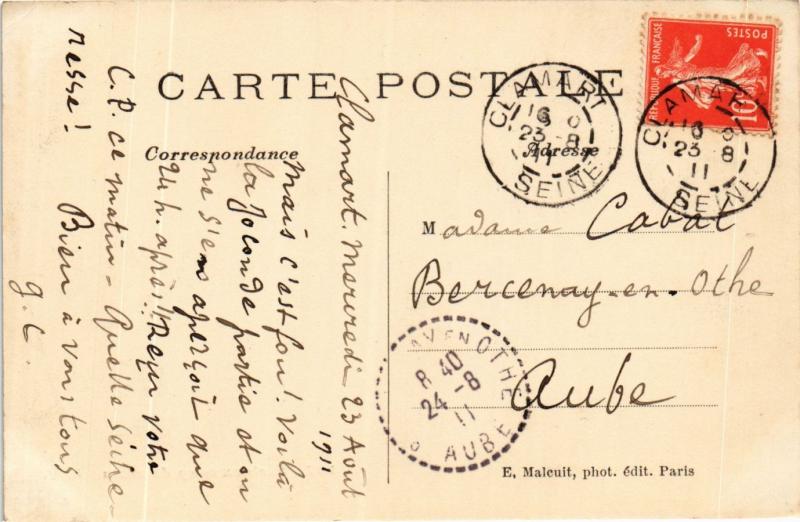 CARTE POSTALE
Correspondance
Adresse
RÉPUBLIQUE FRANÇAISE
POSTES
10
CLAMART
16
23-8
11
SEINE
CLAMART
16
23 8
11
SEINE
Clamart. Mercredi 23 Août
1911
Mais c'est fou! Voilà
la Joconde partie et on
ne s'en aperçoit que
24 h. après!! Reçu votre
C.P. ce matin - Quelle Séche-
resse!
Bien à vous tous
g.C.
Madame Cabat
Bercenay-en-Othe
Aube
AV EN OTHE
8 40
24-8
11
AUBE
E, Malcuit, phot. édit. Paris